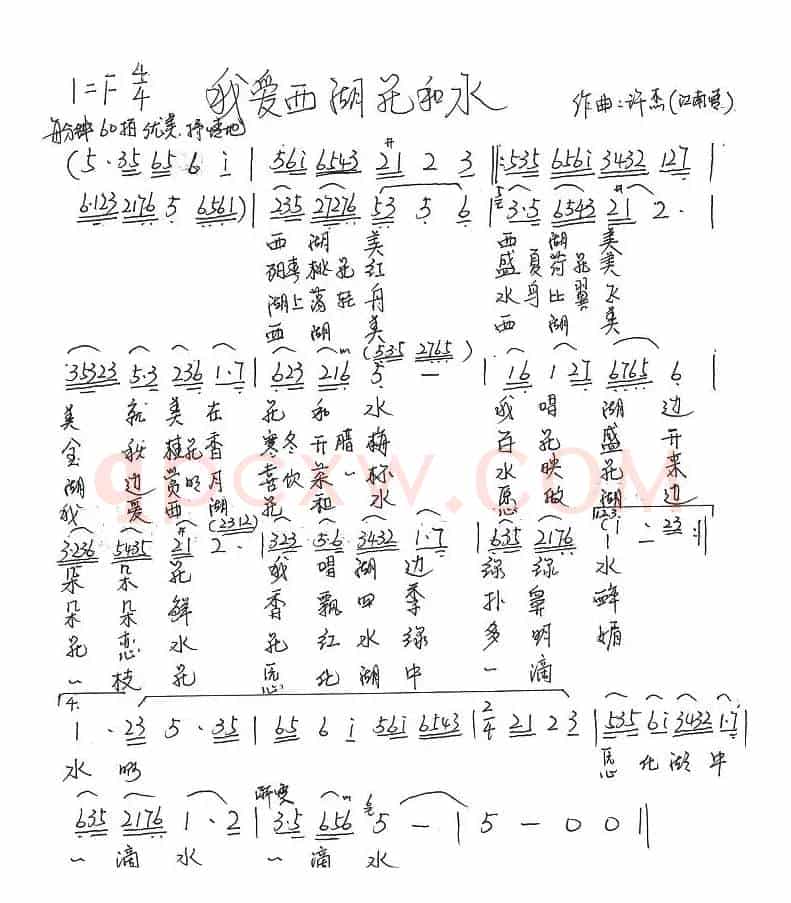 1=F 4/4 我爱西湖花和水 作曲:许杰(江南雪)
每分钟60拍 优美.抒情地
(5·35 65 6 i | 56i 6543 21 2 3 ‖:535 656i 3432 127 |
6·123 2176 5 6561)| 235 27276 53 5 6 | 3·5 6543 21 2· |
西 湖 美 西 湖 美
阳春桃花红 盛夏荷花美
湖上荡轻舟 水鸟比翼飞
西 湖 美 西 湖 美
(535 2765)
35323 5·3 236 1·7 | 623 216 5 — | 16 1 27 6765 6 |
美 就 美 在 花 和 水 我 唱 湖 边
金 秋 桂花香 寒冬开腊梅 百 花 盛 开
湖 边 赏明月 喜饮茶一杯 水 映 花 来
我 爱 西 湖 花 和 水 愿 做 湖 边
(2312) 1.2.3.
3·236 5435 21 2· | 323 5·6 3432 1·7 | 635 2176 (1 — 23 :‖
朵 朵 花 我 唱 湖 边 绿 绿 水
朵 朵 鲜 香 飘 四 季 扑 鼻 醉
花 恋 水 花 红 水 绿 多 明 媚
一 枝 花 愿 化 湖 中 一 滴
4.
1 · 23 5 · 35 | 65 6 i 56i 6543 | 2/4 21 2 3 | 535 6i 3432 1·7 |
水 啊 愿 化 湖 中
渐慢
635 2176 1 · 2 | 3·5 656 5 — | 5 — 0 0 ‖
一 滴 水 一 滴 水
qpcxw.com